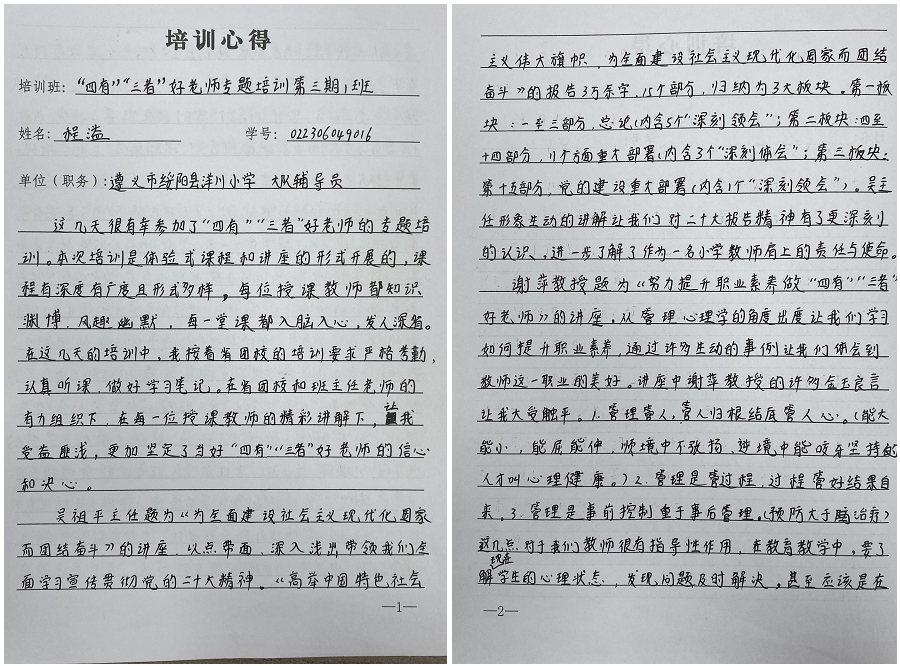 培训心得
培训班: “四有”“三者”好老师专题培训第三期1班
姓名: 程溢 学号: 022306049016
单位(职务): 遵义市绥阳县洋川小学 大队辅导员
这几天很有幸参加了“四有”“三者”好老师的专题培
训。本次培训是体验式课程和讲座的形式开展的,课
程有深度有广度且形式多样,每位授课教师都知识
渊博、风趣幽默,每一堂课都入脑入心,发人深省。
在这几天的培训中,我按着省团校的培训要求严格考勤,
认真听课、做好学习笔记。在省团校和班主任老师的
有力组织下,在每一位授课教师的精彩讲解下,让我
受益匪浅,更加坚定了当好“四有”“三者”好老师的信心
和决心。
吴祖平主任题为《为全面建设社会主义现代化国家
而团结奋斗》的讲座,以点带面,深入浅出带领我们全
面学习宣传贯彻党的二十大精神。《高举中国特色社会
—1—
主义伟大旗帜,为全面建设社会主义现代化国家而团结
奋斗》的报告3万余字,15个部分,归纳为3大板块。第一板
块:一至三部分,总论(内含5个“深刻领会”;第二板块:四至
十四部分,11个方面重大部署(内含3个“深刻体会”;第三板块:
第十五部分,党的建设重大部署(内含1个“深刻领会”)。吴主
任形象生动的讲解让我们对二十大报告精神有了更深刻
的认识、进一步了解了作为一名小学教师肩上的责任与使命。
谢萍教授题为《努力提升职业素养做“四有”“三者”
好老师》的讲座,从管理心理学的角度出度让我们学习
如何提升职业素养,通过许多生动的事例让我们体会到
教师这一职业的美好。讲座中谢萍教授的许多金玉良言
让我大受触平。1.管理管人,管人归根结底管人心。(能大
能小,能屈能伸,顺境中不张扬,逆境中能咬牙坚持的
人才叫心理健康。)2.管理是管过程,过程管好结果自
来。3.管理是事前控制重于事后管理。(预防大于脑治疗)
这几点对于我们教师很有指导性作用,在教育教学中,要了
现在
解学生的心理状态,发现问题及时解决。甚至应该是在
—2—